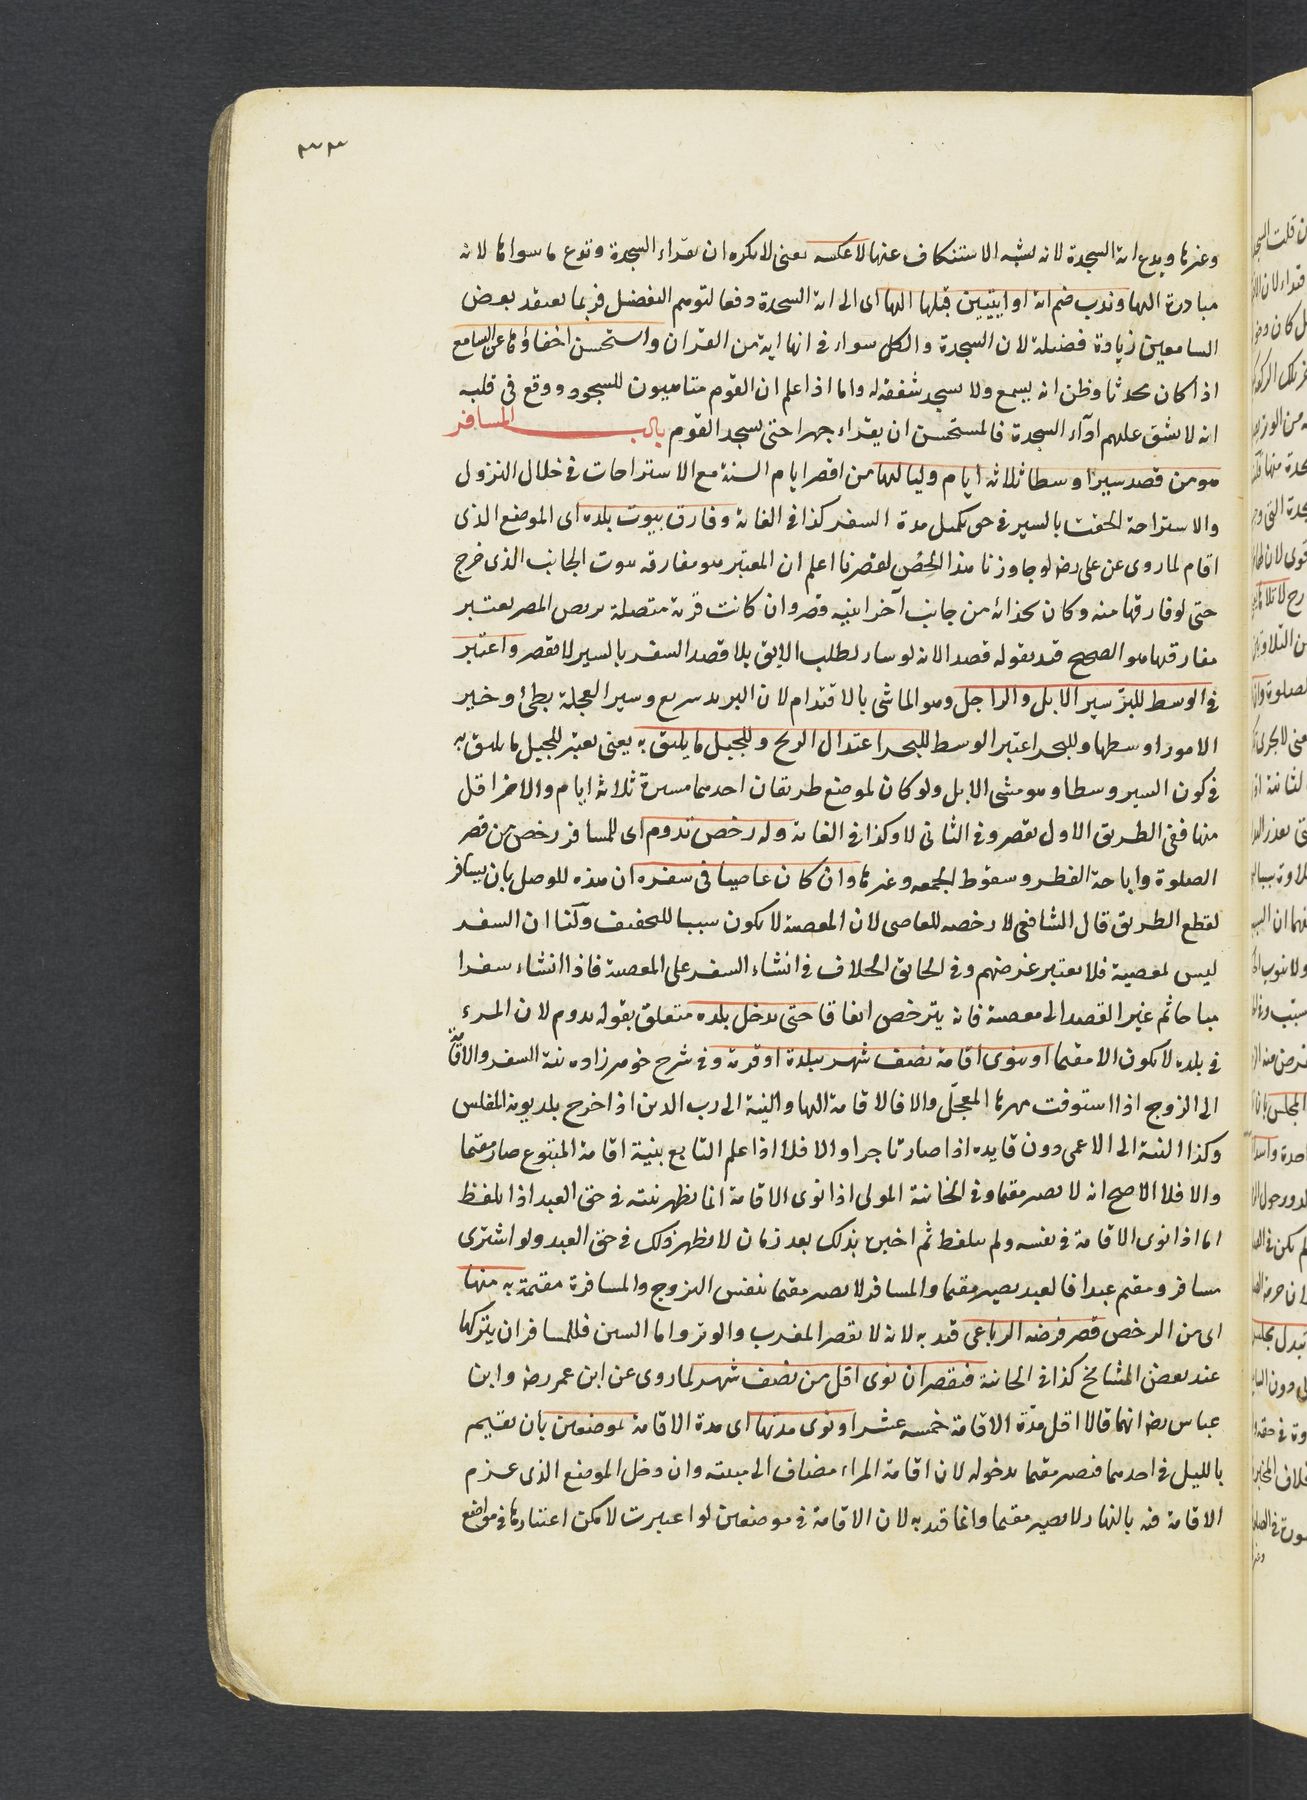 ٣٣
وغيرها ويدع اية السجدة لانه يشبه الاستنكاف عنها لا عكسه يعنى لا يكره ان يقراء السجدة وتدع ما سواها لانه
مبادرة اليها وندب ضم اية او ايتين قبلها اليها اى الى اية السجدة دفعا لتوهم التفضيل فربما يعتقد بعض
السامعين زيادة فضيلة لان السجدة والكل سواء فى انها اية من القران واستحسن اخفاؤها عن السامع
اذا كان محدثا وظن انه يسمع ولا يسجد شفقة له واما اذا علم ان القوم متاهبون للسجود ووقع فى قلبه
انه لا يشق عليهم اداء السجدة فالمستحسن ان يقراء جهرا حتى يسجد القوم باب المسافر
هو من قصد سيرا وسطا ثلاثة ايام ولياليها من اقصر ايام السنة مع الاستراحات فى خلال النزول
والاستراحة الحقت بالسير فى حق تكميل مدة السفر كذا فى الغاية وفارق بيوت بلده اى الموضع الذى
اقام لما روى عن على رضه لو جاوزنا هذا الخص لقصرنا اعلم ان المعتبر هو مفارقة بيوت الجانب الذى خرج
حتى لو فارقها منه وكان بحذائه من جانب آخر ابنية قصر وان كانت قرية متصلة بربض المصر يعتبر
مفارقتها هو الصحيح قيد بقوله قصد لانه لو سار لطلب الابق بلا قصد السفر بالسير لا يقصر واعتبر
فى الوسط للبر سير الابل والراجل وهو الماشى بالاقدام لان البريد سريع وسير العجلة بطئ وخير
الامور اوسطها وللبحر اعتبر الوسط للبحر اعتدال الريح وللجبل ما يليق به يعنى يعتبر للجبل ما يليق به
فى كون السير وسطا وهو مشى الابل ولو كان لموضع طريقان احدهما مسيرة ثلاثة ايام والاخر اقل
منها ففى الطريق الاول يقصر وفى الثانى لا وكذا فى الغاية وله رخص تدوم اى للمسافر رخص من قصر
الصلوة واباحة الفطر وسقوط الجمعه وغيرها وان كان عاصيا فى سفره ان هذه للوصل بان يسافر
لقطع الطريق قال الشافعى لا رخصة للعاصى لان المعصية لا يكون سببا للتخفيف ولنا ان السفر
ليس لمعصية فلا يعتبر غرضهم وفى الحايق الخلاف فى انشاء السفر على المعصية فاذا انشاء سفرا
مباحا ثم غير القصد الى معصية فانه يترخص اتفاقا حتى يدخل بلده متعلق بقوله يدوم لان المرء
فى بلده لا يكون الا مقيما او ينوى اقامة نصف شهر ببلدة او قرية وفى شرح خوهرزاده نية السفر والاقامة
الى الزوج اذا استوفت مهرها المعجّل والا فالاقامة اليها والنية الى رب الدين اذا اخرج بمديونه المفلس
وكذا النية الى الاعمى دون قايده اذا صار تاجرا والا فلا اذا علم التابع بنية اقامة المتبوع صار مقيما
والا فلا الاصح انه لا يصير مقيما وفى الخانية المولى اذا نوى الاقامة انما يظهر نيته فى حق العبد اذا تلفظ
اما اذا نوى الاقامة فى نفسه ولم يتلفظ ثم اخبر بذلك بعد زمان لا يظهر ذلك فى حق العبد ولو اشترى
مسافر ومقيم عبدا فالعبد يصير مقيما والمسافر لا يصير مقيما بنفس التزوج والمسافرة مقيمة به منها
اى من الرخص قصر فرضه الرباعى قيد به لانه لا يقصر المغرب والوتر واما السنن فللمسافر ان يتركها
عند بعض المشايخ كذا فى الخانية فيقصر ان نوى اقل من نصف شهر لما روى عن ابن عمر رضه وابن
عباس رضه انهما قالا اقل مدّة الاقامة خمسه عشر او نوى مدتها اى مدة الاقامة بموضعين بان يقيم
بالليل فى احدهما فيصير مقيما بدخوله لان اقامة المراء مضاف الى مبيته وان دخل الموضع الذى عزم
الاقامة فيه بالنهار لا يصير مقيما وانما قيد به لان الاقامة فى موضعين لو اعتبرت لامكن اعتبارها فى مواضع